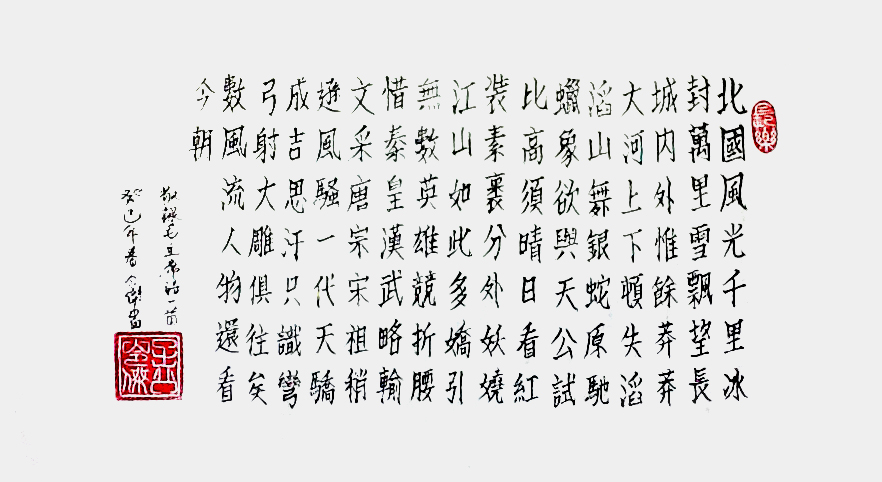 長樂
北國風光千里冰
封萬里雪飄望長
城内外惟餘莽莽
大河上下頓失滔
滔山舞銀蛇原馳
蠟象欲與天公試
比高須晴日看紅
装素裹分外妖嬈
江山如此多嬌引
無數英雄競折腰
惜秦皇漢武略輸
文采唐宗宋祖稍
遜風騷一代天驕
成吉思汗只識彎
弓射大雕俱往矣
數風流人物還看
今朝
敬録毛主席詞一首
癸巳年春令傑書